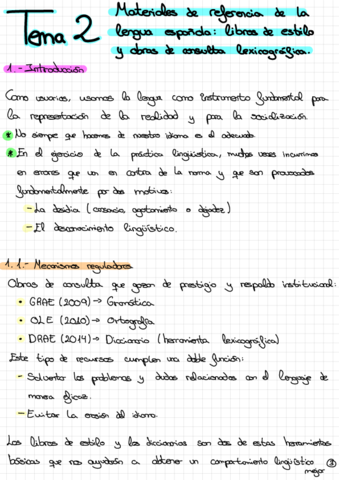 Tema 2
Materiales de referencia de la
lengua española: libros de estilo
y obras de consulta lexicográfica.
1.- Introducción
Como usuarios, usamos la lengua como instrumento fundamental para
la representación de la realidad y para la socialización
* No siempre que hacemos de nuestro idioma es el adecuado
* En el ejercicio de la práctica lingüística, muchas veces incurrimos
en errores que van en contra de la norma y que son provocados
fundamentalmente por dos motivos:
- La desidia ( agotamiento o dejadez)
- El desconocimiento lingüístico.
1.1.- Mecanismos reguladores
Obras de consulta que gozan de prestigio y respaldo institucional:
• GRAE (2009) → Gramática
• OLE (2010) → Ortografía
• DRAE (2014) → Diccionario (herramienta lexicográfica)
Este tipo de recursos cumplen una doble función:
- Solventar los problemas y dudas relacionados con el lenguaje de
manera eficaz.
- Evitar la erosión del idioma.
Los libros de estilo y los diccionarios son dos de estas herramientas
básicas que nos ayudarán a obtener un comportamiento lingüístico
mejor